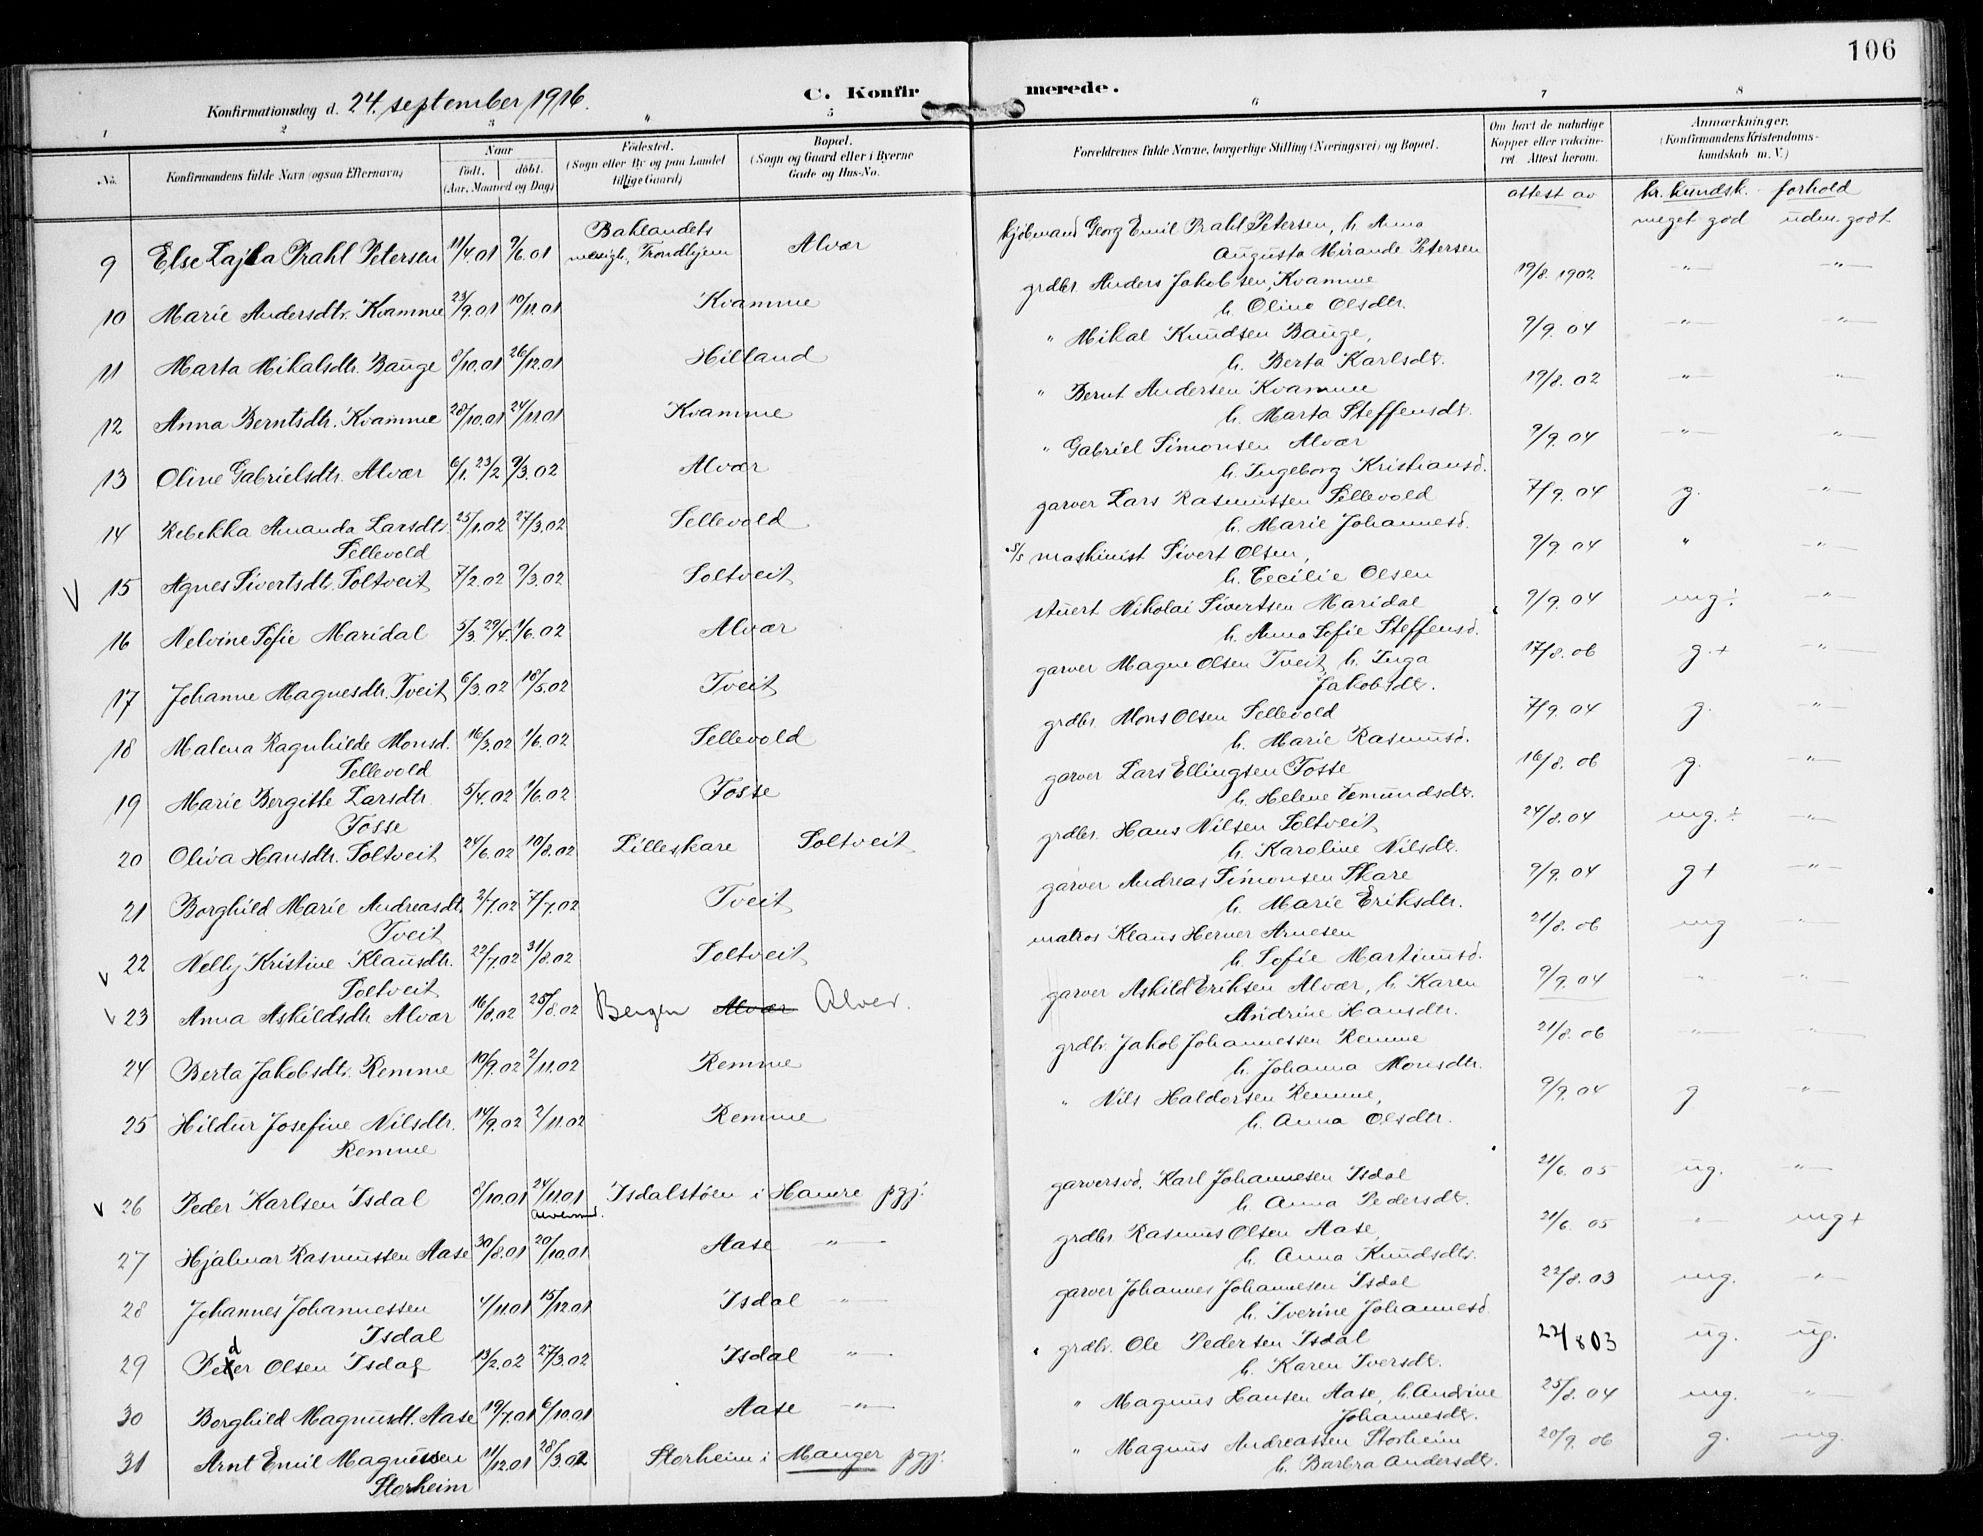 106
Konfirmationsdag d. 24. september 1916. C. Konfirmerede.
1 2 3 " 5 6 7 8
No. Konfirmandens fulde Navn (ogsaa Efternavn) Naar født. døbt. (Aar, Maaned og Dag) Fødested. (Sogn eller By og paa Landet tillige Gaard) Bopæl. (Sogn og Gaard eller i Byerne Gade og Hus-No. Forældrenes fulde Navne, borgerlige Stilling (Næringsvei) og Bopæl. Om havt de naturlige Kopper eller vakcineret Attest herom. Anmærkninger. (Konfirmandens Kristendomskundskab m. V.)
attest av kr. kundsk. forhold
9 Else Lajla Prahl Petersen 11/4.01 9/6.01 Baklandets menigh., Trondhjem Alvær kjøbmand Georg Emil Prahl Petersen, h. Anna meget god uden. godt
Augusta Mirande Petersen
10 Marie Andersdtr. Kvamme 23/9.01 10/11.01 Kvamme grdbr. Anders Jakobsen Kvamme 19/8. 1902 -"- -"-
h. Oline Olsdtr.
11 Marta Mikalsdtr. Bauge 8/10.01 26/12.01 Hilland " Mikal Knudsen Bauge, 9/9. 04 -"- -"-
h. Berta Karlsdtr.
12 Anna Berntsdtr. Kvamme 28/10.01 24/11.01 Kvamme " Bernt Andersen Kvamme 19/8. 02 -"- -"-
h. Marta Steffensdtr.
13 Oline Gabrielsdtr. Alvær 6/1. 23/2 9/3.02 Alvær " Gabriel Simonsen Alvær 9/9. 04 -"- -"-
h. Ingeborg Kristiansd.
14 Rebekka Amanda Larsdtr. 25/1.02 27/3.02 Sellevold garver Lars Rasmussen Sellevold 7/9. 04 g. -"-
Sellevold h. Marie Johannesd.
V 15 Agnes Sivertsdtr. Soltveit 7/2.02 9/3.02 Soltveit s/s maskinist Sivert Olsen, 9/9. 04 " -"-
h. Cecilie Olsen
16 Nelvine Sofie Maridal 5/3. 29/4. 1/6.02 Alvær stuert Nikolai Sivertsen Maridal 9/9. 04 mg÷ -"-
h. Anna Sofie Steffensd.
17 Johanne Magnesdtr. Tveit 6/3.02 18/5.02 Tveit garver Magne Olsen Tveit, h. Inga 17/8. 06 g.+ -"-
Jakobsdtr.
18 Malena Ragnhilde Monsd. 16/3.02 1/6.02 Sellevold grdbr. Mons Olsen Sellevold 7/9. 04 g. -"-
Sellevold h. Marie Rasmusd.
19 Marie Bergitte Larsdtr. 5/4.02 1/6.02 Fosse garver Lars Ellingsen Fosse 16/8. 06 g. -"-
Fosse h. Helene Semundsdtr.
20 Oliva Hansdtr. Soltveit 24/6.02 10/8.02 Lilleskare Soltveit grdbr. Hans Nilsen Soltveit 24/8. 04 mg.÷ -"-
h. Karoline Nilsdtr.
21 Borghild Marie Andreasdtr. 2/7.02 7/7.02 Tveit garver Andreas Simonsen Skare 9/9. 04 g+ -"-
Tveit h. Marie Eriksdtr.
V 22 Nelly Kristine Klausdtr. 22/7.02 31/8.02 Soltveit matros Klaus Herver Arnesen 21/8. 06 mg -"-
Soltveit h. Sofie Martinusd.
V 23 Anna Askildsdtr Alvær 16/8.02 25/8.02 Bergen Alvær Alver. garver Askild Eriksen Alvær, h. Karen 9/9. 04 " -"-
Andrine Hansdtr.
24 Berta Jakobsdtr. Remme 10/9.02 2/11.02 Remme grdbr. Jakob Johannessen Remme 21/8. 06 -"- -"-
h. Johanna Monsdtr.
25 Hildur Josefine Nilsdtr. 14/9.02 2/11.02 Remme " Nils Haldorsen Remme, 9/9. 04 g -"-
Remme h. Anna Olsdtr.
V 26 Peder Karlsen Isdal 8/10.01 24/11.01 Isdalstøen i Hamre pgj. garversvd. Karl Johannesen Isdal 21/6. 05 ug. -"-
h. Anna Pedersdtr.
27 Hjalmar Rasmussen Aase 30/8.01 20/10.01 Aase -"- grdbr Rasmus Olsen Aase, 21/6. 05 -"- mg+
h. Anna Knudsdtr.
28 Johannes Johannessen 4/11.01 15/12.01 Isdal -"- garver Johannes Johannesen Isdal 22/8. 03 mg. -"-
Isdal h. Iverine Johannesd.
29 Peder Olsen Isdal 13/2.02 27/3.02 Isdal -"- grdbr. Ole Pedersen Isdal 22/8 03 ug. ug.
h. Karen Iversdtr.
30 Borghild Magnusdt. Aase 19/7.01 6/10.01 Aase -"- " Magnus Hansen Aase, h. Andrine 25/8. 04 mg. -"-
Johannesdtr.
31 Arnt Emil Magnussen 11/12.01 28/3.02 Storheim i Manger pgj. " Magnus Andreassen Storheim 20/9. 06 g. mg.
Storheim h. Barbra Andersdtr.